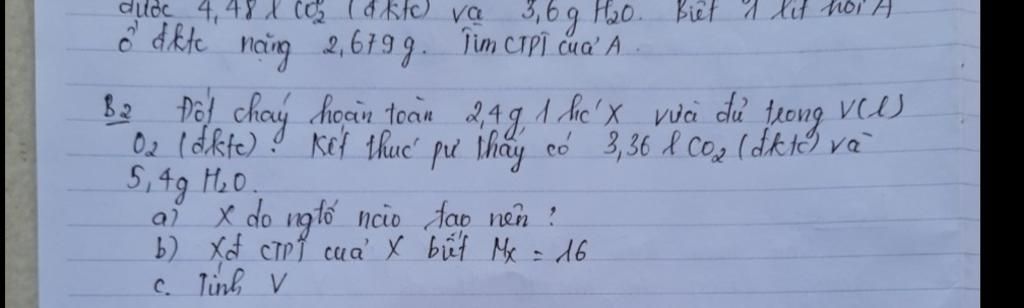 được 4,48 l CO2 (đktc) và 3,6g H2O. Biết 1 lít hơi A
ở đktc nặng 2,679g. Tìm CTPT của A.
B2 Đốt cháy hoàn toàn 2,4g 1 hc' X vừa đủ trong V(l)
O2 (đktc). Kết thúc pư thấy có 3,36 l CO2 (đktc) và
5,4g H2O.
a) X do ngtố nào tạo nên?
b) Xđ CTPT của X biết Mx = 16
c. Tính V